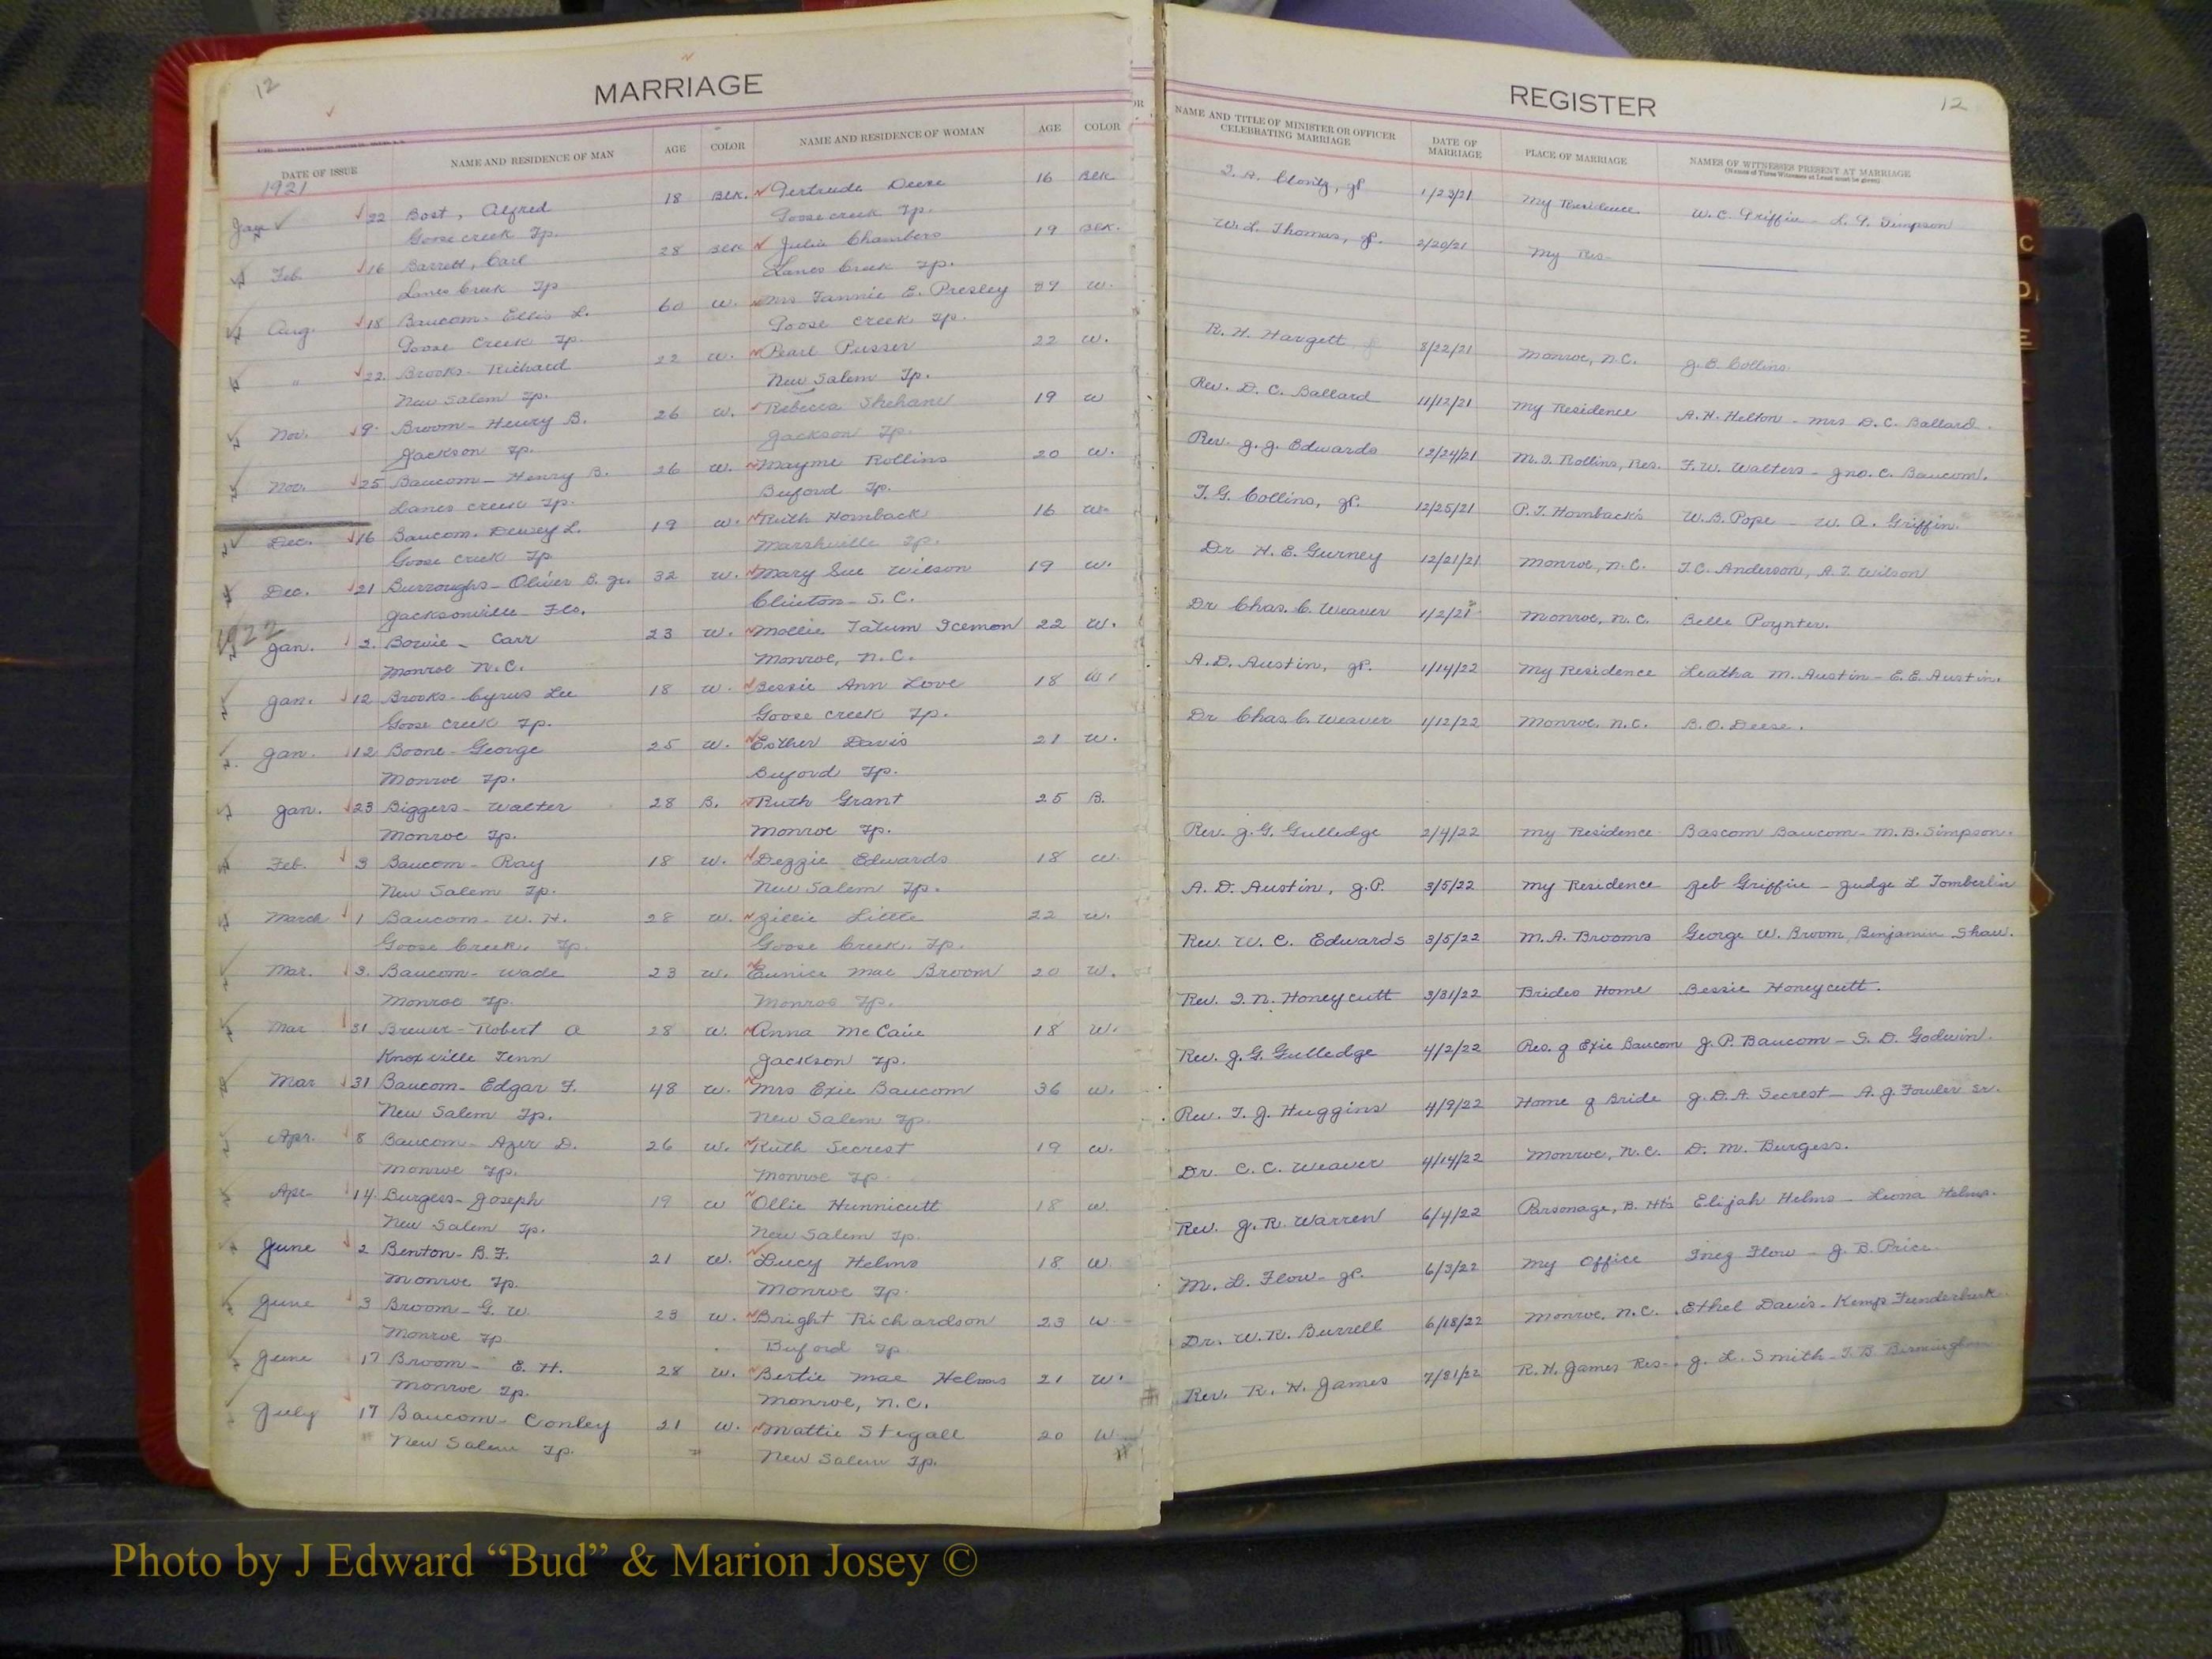 12
MARRIAGE
DATE OF ISSUE NAME AND RESIDENCE OF MAN AGE COLOR NAME AND RESIDENCE OF WOMAN AGE COLOR
1921
Jan 22 Bost, Alfred 18 Blk. Gertrude Deese 16 Blk.
Goose creek Tp. Goose creek Tp.
Feb. 16 Barrett, Carl 28 Blk Julia Chambers 19 Blk.
Lanes Creek Tp Lanes Creek Tp.
Aug. 18 Baucom- Ellis L. 60 w. Mrs Fannie E. Presley 39 w.
Goose Creek Tp. Goose Creek Tp.
" 22. Brooks- Richard 22 w. Pearl Pusser 22 w.
New Salem Tp. New Salem Tp.
Nov. 9. Broom- Henry B. 26 w. Rebecca Shehane 19 w
Jackson Tp. Jackson Tp.
Nov. 25 Baucom- Henry B. 26 w. Mayme Rollins 20 w.
Lanes creek Tp. Buford Tp.
Dec. 16 Baucom. Dewey L. 19 w. Ruth Hornback 16 w.
Goose creek Tp Marshville Tp.
Dec. 21 Burroughs- Oliver B. Jr. 32 w. Mary Sue Wilson 19 w.
Jacksonville Fla. Clinton- S.C.
1922
Jan. 2. Bowie- Carr 23 w. Mollie Tatum Icemon 22 w.
Monroe N.C. Monroe, N.C.
Jan. 12 Brooks- Cyrus Lee 18 w. Bessie Ann Love 18 w.
Goose creek Tp. Goose creek Tp.
Jan. 12 Boone- George 25 w. Esther Davis 21 w.
Monroe Tp. Buford Tp.
Jan. 23 Biggers- Walter 28 B. Ruth Grant 25 B.
Monroe Tp. Monroe Tp.
Feb. 3 Baucom- Ray 18 w. Dezzie Edwards 18 w.
New Salem Tp. New Salem Tp.
March 1 Baucom- W. H. 28 w. Zillie Little 22 w.
Goose Creek. Tp. Goose Creek. Tp.
Mar. 3. Baucom- Wade 23 w. Eunice Mae Broom 20 w.
Monroe Tp. Monroe Tp.
Mar 31 Brewer- Robert A 28 w. Anna McCain 18 w.
Knoxville Tenn Jackson Tp.
Mar 31 Baucom- Edgar F. 48 w. Mrs Exie Baucom 36 w.
New Salem Tp. New Salem Tp.
Apr. 8 Baucom- Azer D. 26 w. Ruth Secrest 19 w.
Monroe Tp. Monroe Tp.
Apr- 14. Burgess- Joseph 19 w Ollie Hunnicutt 18 w.
New Salem Tp. New Salem Tp.
June 2 Benton- B. F. 21 w. Lucy Helms 18 w
Monroe Tp. Monroe Tp.
June 3 Broom- G. W. 23 w. Bright Richardson 23 w
Monroe Tp. Buford Tp
June 17 Broom- E. H. 28 w. Bertie Mae Helms 21 w.
Monroe Tp. Monroe, N.C.
July 17 Baucom- Conley 21 w. Mattie Stegall 20 w
New Salem Tp. New Salem Tp.
REGISTER
12
NAME AND TITLE OF MINISTER OR OFFICER CELEBRATING MARRIAGE DATE OF MARRIAGE PLACE OF MARRIAGE NAMES OF WITNESSES PRESENT AT MARRIAGE
(Names of Three Witnesses at Least must be given)
1/23/21 My Residence. W. C. Griffin - L. P. Simpson
W. L. Thomas, JP. 2/20/21 My Res-
R. H. Hargett 8/22/21 Monroe, N.C. J. E. Collins.
Rev. D. C. Ballard 11/12/21 My Residence A. H. Helton - Mrs D. C. Ballard.
Rev. J. J. Edwards 12/24/21 M. I. Rollins, Res. F. W. Walters - Jno. C. Baucom.
T. G. Collins, JP. 12/25/21 P. T. Hornback's W. B. Pope - W. A. Griffin.
Dr H. E. Gurney 12/21/21 Monroe, N.C. T. C. Anderson, A. T. Wilson
Dr Chas. C. Weaver 1/2/21 Monroe, N.C. Belle Poynter.
A. D. Austin, JP. 1/14/22 My Residence Leatha M. Austin - E. E. Austin.
Dr Chas. C. Weaver 1/12/22 Monroe, N.C. B. O. Deese.
Rev. J. G. Gulledge 2/4/22 My Residence Bascom Baucom - M. B. Simpson.
A. D. Austin, J.P. 3/5/22 My Residence Zeb Griffin - Judge L Tomberlin
Rev. W. C. Edwards 3/5/22 M. A. Brooms George W. Broom, Benjamin Shaw.
Rev. I. N. Honeycutt 3/31/22 Brides Home Bessie Honeycutt.
Rev. J. G. Gulledge 4/2/22 Res. of Exie Baucom J. P. Baucom - S. D. Godwin.
Rev. T. J. Huggins 4/9/22 Home of Bride J. D. A. Secrest - A. J. Fowler Sr.
Dr. C. C. Weaver 4/14/22 Monroe, N.C. D. M. Burgess.
Rev. J. R. Warren 6/4/22 Parsonage, B. Hts Elijah Helms - Leona Helms.
M. L. Flow- JP. 6/3/22 My Office Inez Flow - J. B. Price.
Dr. W. R. Burrell 6/18/22 Monroe, N.C. Ethel Davis - Kemp Funderburk
Rev. R. H. James 7/31/22 R. H. James Res- J. L. Smith - T. B.
C
D
E
Photo by J Edward “Bud” & Marion Josey ©